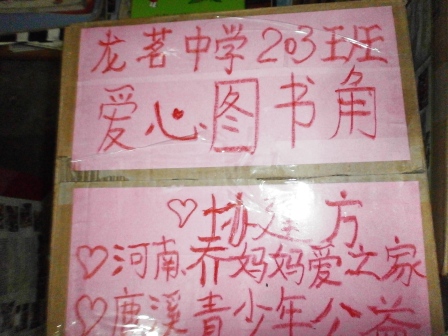 龙茗中学203班
爱心图书角
♡协建方
♡河南乔妈妈爱之家
♡唐溪青少年公益